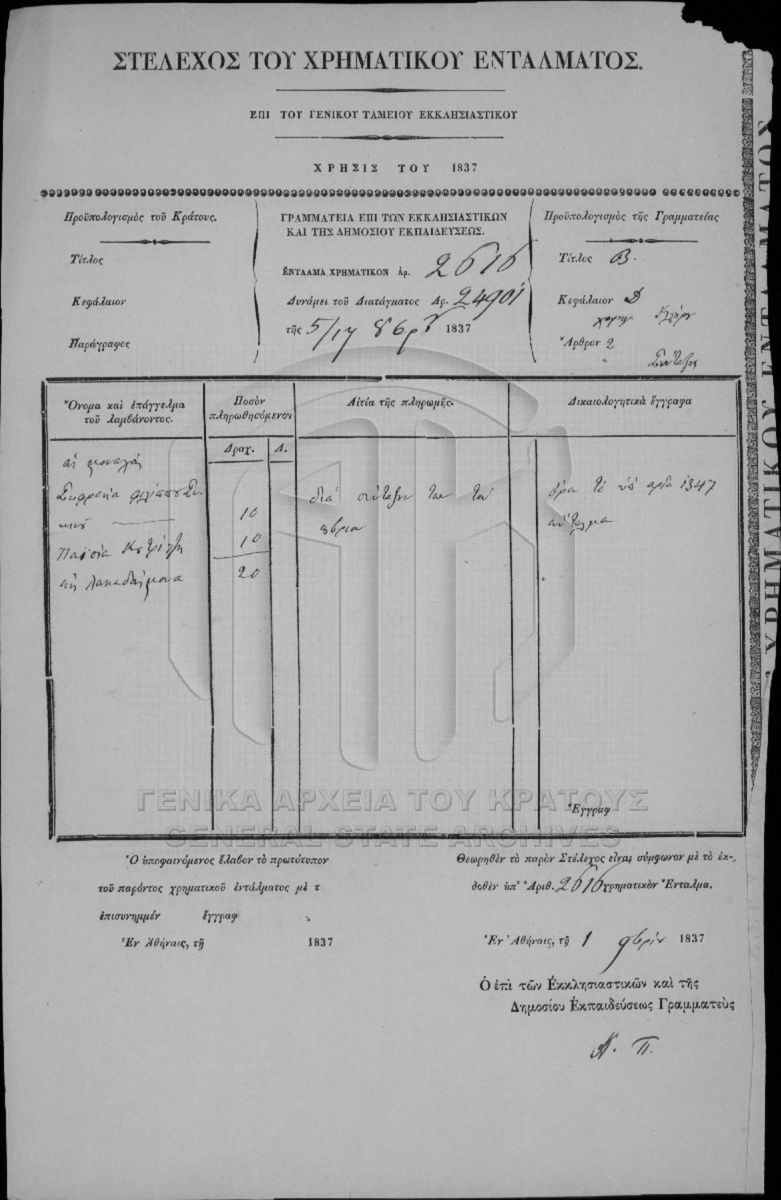 ΣΤΕΛΕΧΟΣ ΤΟΥ ΧΡΗΜΑΤΙΚΟΥ ΕΝΤΑΛΜΑΤΟΣ.
ΕΠΙ ΤΟΥ ΓΕΝΙΚΟΥ ΤΑΜΕΙΟΥ ΕΚΚΛΗΣΙΑΣΤΙΚΟΥ
ΧΡΗΣΙΣ ΤΟΥ 1837
Προϋπολογισμὸς τοῦ Κράτους.
Τίτλος
Κεφάλαιον
Παράγραφος
ΓΡΑΜΜΑΤΕΙΑ ΕΠΙ ΤΩΝ ΕΚΚΛΗΣΙΑΣΤΙΚΩΝ
ΚΑΙ ΤΗΣ ΔΗΜΟΣΙΟΥ ΕΚΠΑΙΔΕΥΣΕΩΣ.
ΕΝΤΑΛΜΑ ΧΡΗΜΑΤΙΚΟΝ ἀρ. 2616
Δυνάμει τοῦ Διατάγματος Αρ. 24901
τῆς 5/17 8βρίου 1837
Προϋπολογισμὸς τῆς Γραμματείας
Τίτλος Β.
Κεφάλαιον Δ
Ἄρθρον 2
Σύνταξις
Ὄνομα καὶ ἐπάγγελμα
τοῦ λαμβάνοντος.
Ποσὸν
πληρωθησόμενον
Αἰτία τῆς πληρωμῆς.
Δικαιολογητικὰ ἔγγραφα
Δραχ. Λ.
αἱ μοναχαὶ
10
Παϊσία
10
20
διὰ σύνταξιν των τοῦ
8βρίου
ὅρα τὸ ὑπ' ἀριθ 1347
ἔνταλμα
Ἔγγραφ
ΓΕΝΙΚΑ ΑΡΧΕΙΑ ΤΟΥ ΚΡΑΤΟΥΣ
GENERAL STATE ARCHIVES
Ὁ ὑποφαινόμενος ἔλαβον τὸ πρωτότυπον
τοῦ παρόντος χρηματικοῦ ἐντάλματος μὲ τ
ἐπισυνημμέν ἔγγραφ
Ἐν Ἀθήναις, τῇ 1837
Θεωρηθὲν τὸ παρὸν Στέλεχος εἶναι σύμφωνον μὲ τὸ ἐκ-
δοθὲν ὑπ' Ἀριθ. 2616 χρηματικὸν Ἔνταλμα.
Ἐν Ἀθήναις, τῇ 1 9βρίου 1837
Ὁ ἐπὶ τῶν Ἐκκλησιαστικῶν καὶ τῆς
Δημοσίου Ἐκπαιδεύσεως Γραμματεὺς
Α. Π.
ΧΡΗΜΑΤΙΚΟΥ ΕΝΤΑΛΜΑΤΟΣ